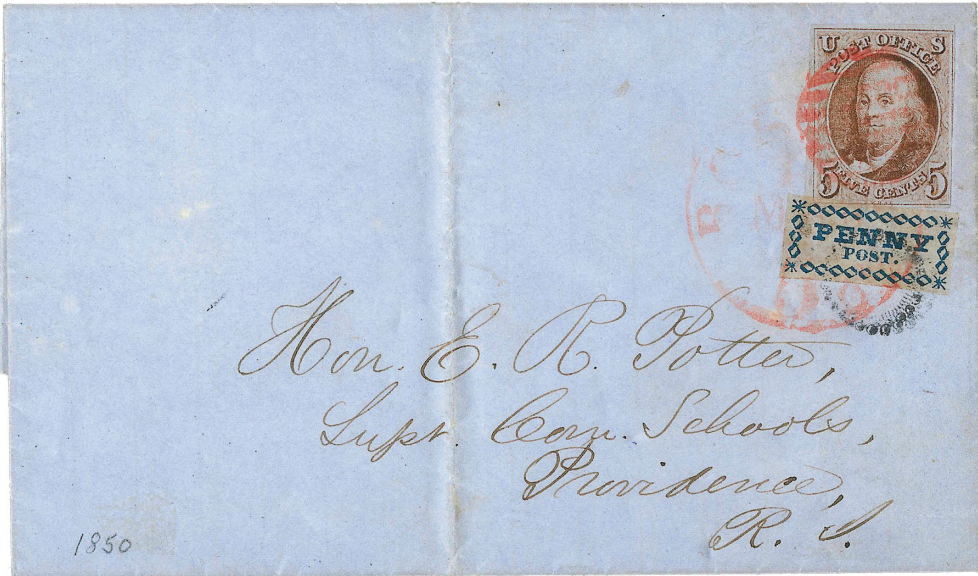 U S
POST OFFICE
FIVE CENTS
5 5
PENNY
POST.
Hon. E. R. Potter,
Supt. Com. Schools,
Providence,
R. I.
1850